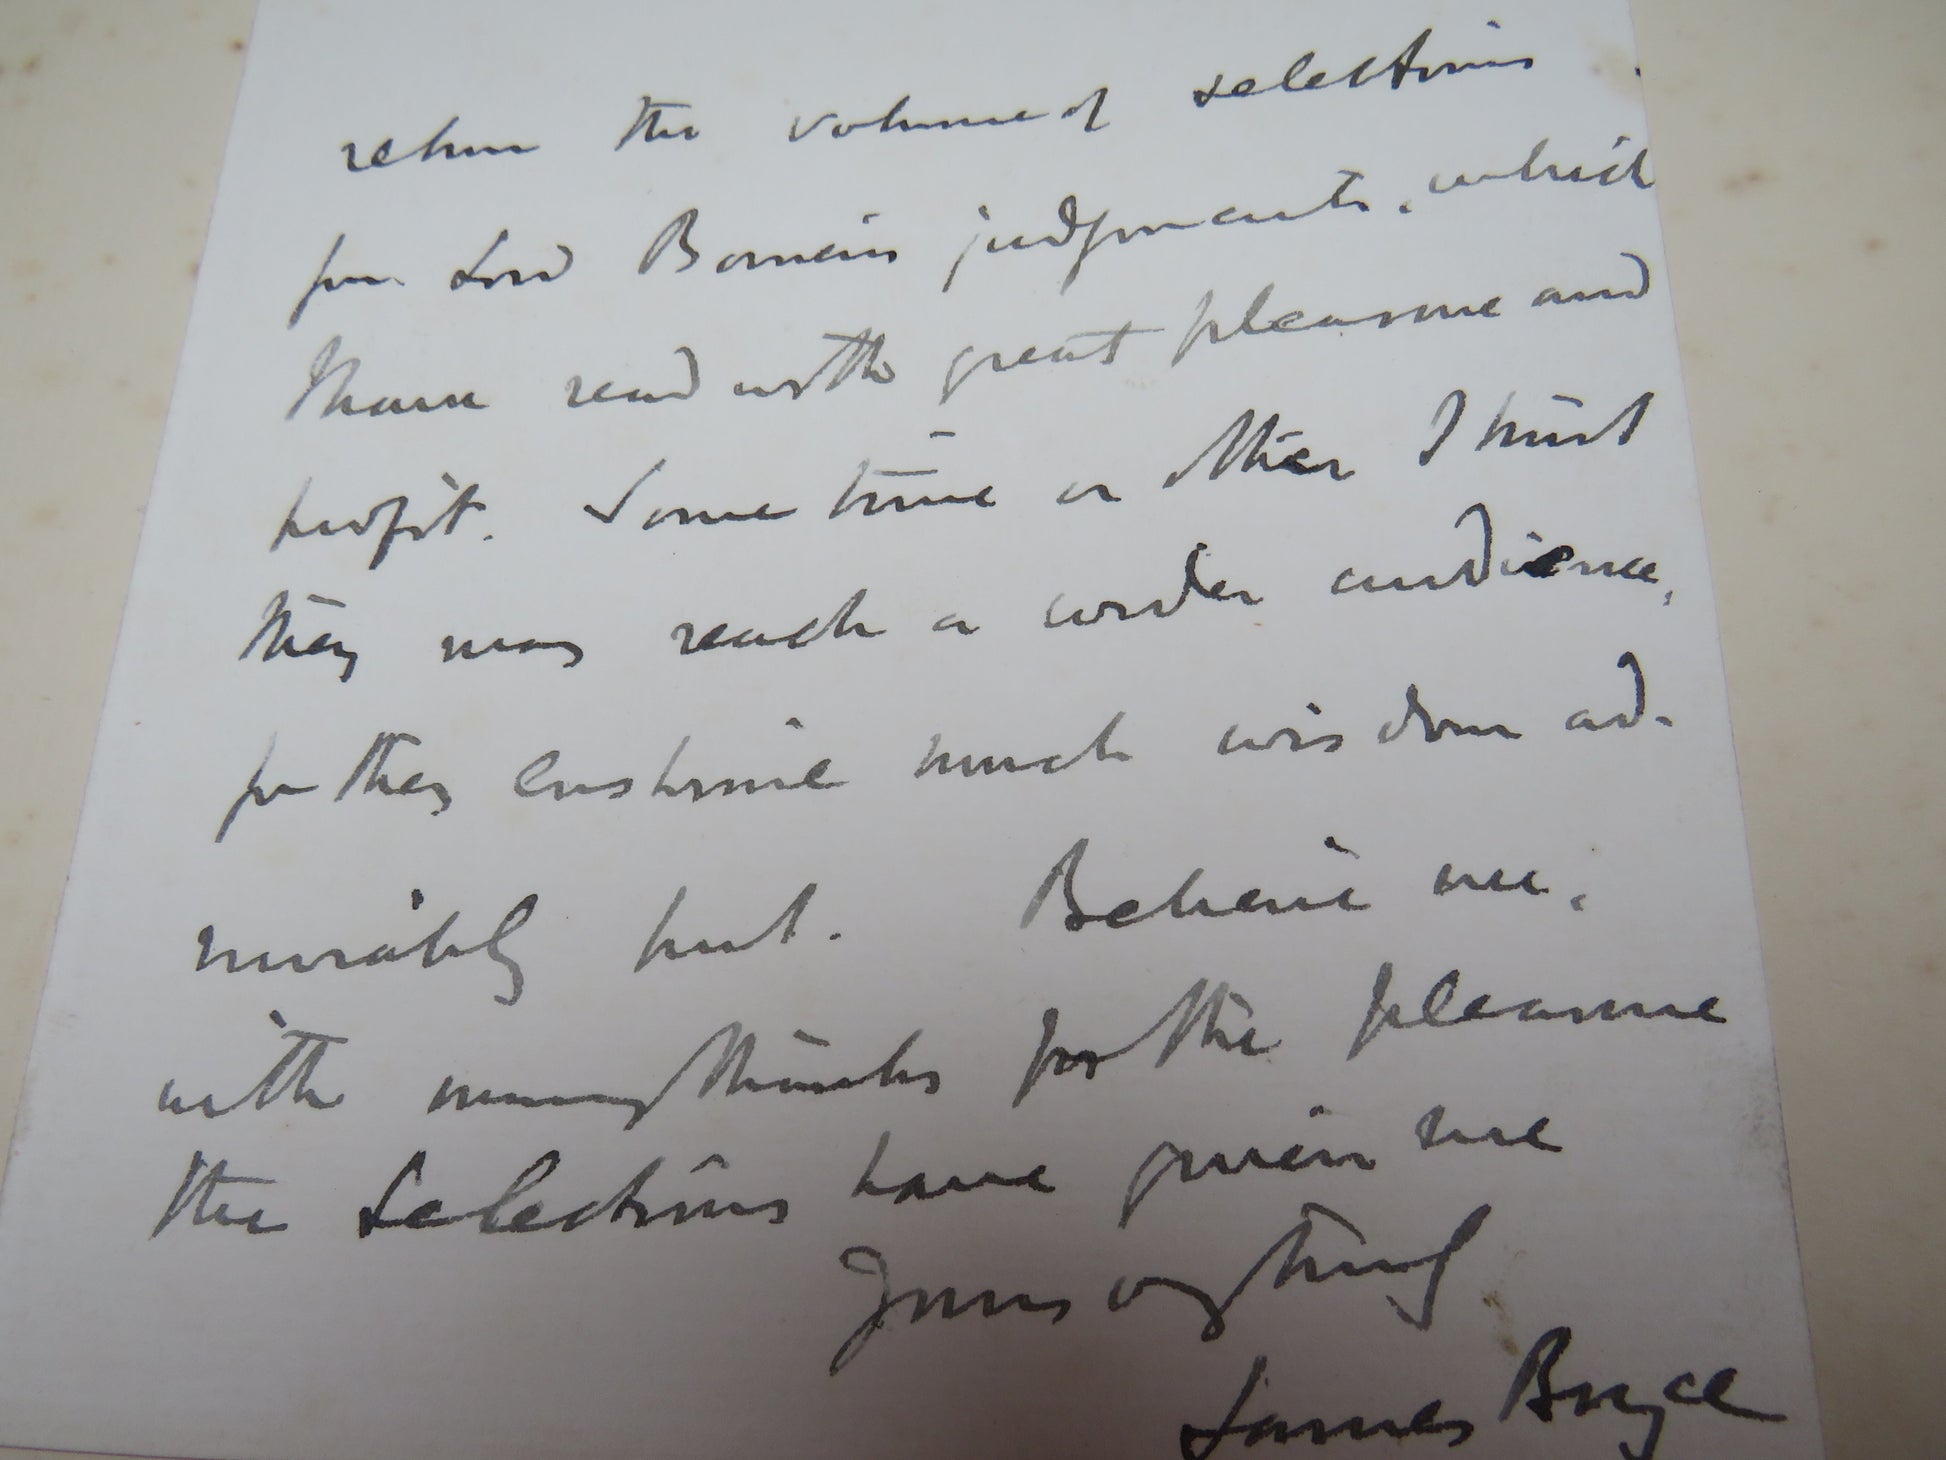 return the volume of selections
from Lord Bowen's judgments, which
I have read with great pleasure and
profit. Some time or other I trust
they may reach a wider audience,
for they enshrine much wisdom ad-
mirably put. Believe me,
with many thanks for the pleasure
the Selections have given me
Yours very truly
James Bryce